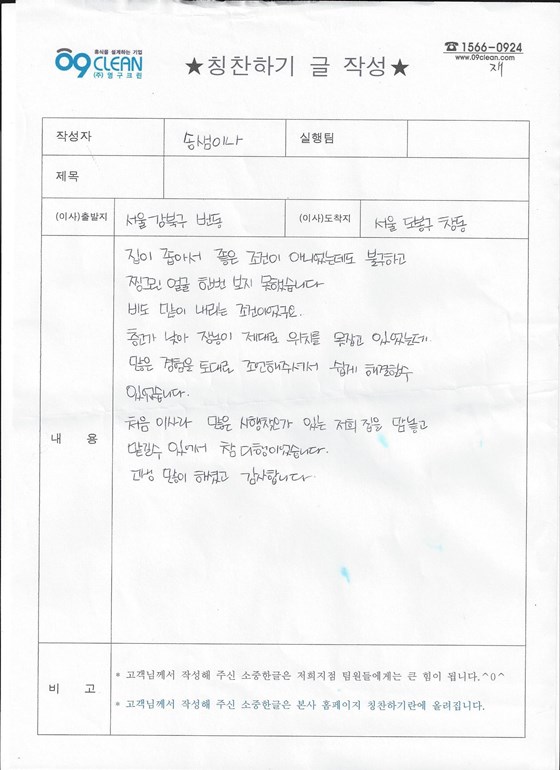 휴식을 설계하는 기업
09 CLEAN
(주)영구크린
★칭찬하기 글 작성★
☎1566-0924
www.09clean.com
재
작성자 송샘이나 실행팀
제목
(이사)출발지 서울 강북구 번동 (이사)도착지 서울 도봉구 창동
내 용
집이 좁아서 좋은 조건이 아니었는데도 불구하고
찡그린 얼굴 한번 보지 못했습니다
비도 많이 내리는 조건이었구요.
층고가 낮아 장농이 제대로 위치를 못잡고 있었는데
많은 경험을 토대로 조언해주셔서 쉽게 해결할수
있었습니다.
처음 이사라 많은 시행착오가 있는 저희 집을 맘놓고
맡길수 있어서 참 다행이었습니다.
고생 많이 하셨고 감사합니다.
비 고
* 고객님께서 작성해 주신 소중한글은 저희지점 팀원들에게는 큰 힘이 됩니다.^0^
* 고객님께서 작성해 주신 소중한글은 본사 홈페이지 칭찬하기란에 올려집니다.